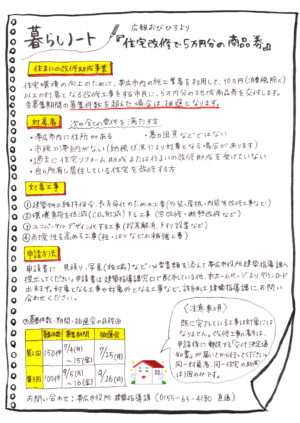 広報おびひろより
暮らしノート 『住宅改修で5万円分の商品券』
住まいの改修助成事業
住宅環境の向上のために、帯広市内の施工業者を利用して、10万円(消費税除く)
以上の対象となる改修工事をする市民に、5万円分の地元商品券を交付します。
各募集期間の募集件数を超えた場合は、抽選となります。
対象者 次の全ての要件を満たす方
・帯広市内に住所がある
・暴力団員などではない
・市税の滞納がない(納税状況により対象となる場合があります)
・過去に住宅リフォーム助成または住まいの改修助成を受けていない
・自ら所有し居住している住宅を改修する方
対象工事
①建築物の維持保全、長寿命化のための工事(外装・屋根・内装等改修工事など)
②環境負荷を低減(CO₂削減)する工事(窓改修・断熱改修など)
③ユニバーサルデザイン化する工事(段差解消、手すり設置など)
④耐震性を高める工事(柱・はりなどの補強工事)
申請方法
申請書に、見積り、写真(施工前)など必要書類を添えて帯広市役所建築指導課へ
提出してください。申請書は建築指導課窓口で配布している他、ホームページよりダウンロード
出来ます。対象となる工事や対象外となる工事など、詳細は建築指導課にお問い
合わせください。
◎募集件数・期間・抽選会の日程◎
募集件数 募集期間 抽選会
第2回 150件 7/4(月)~15(金) 7/25(月)
第3回 100件 9/5(月)~16(金) 9/26(月)
〈注意事項〉
既に完了している工事は対象には
なりません。改修工事の着手は、
申請後に郵送する「交付決定通
知書」が届いてから行ってください。
同一対象者、同一住宅の助成
は1回のみです。
お問い合わせ：帯広市役所 建築指導課 (0155-65-4180 直通)